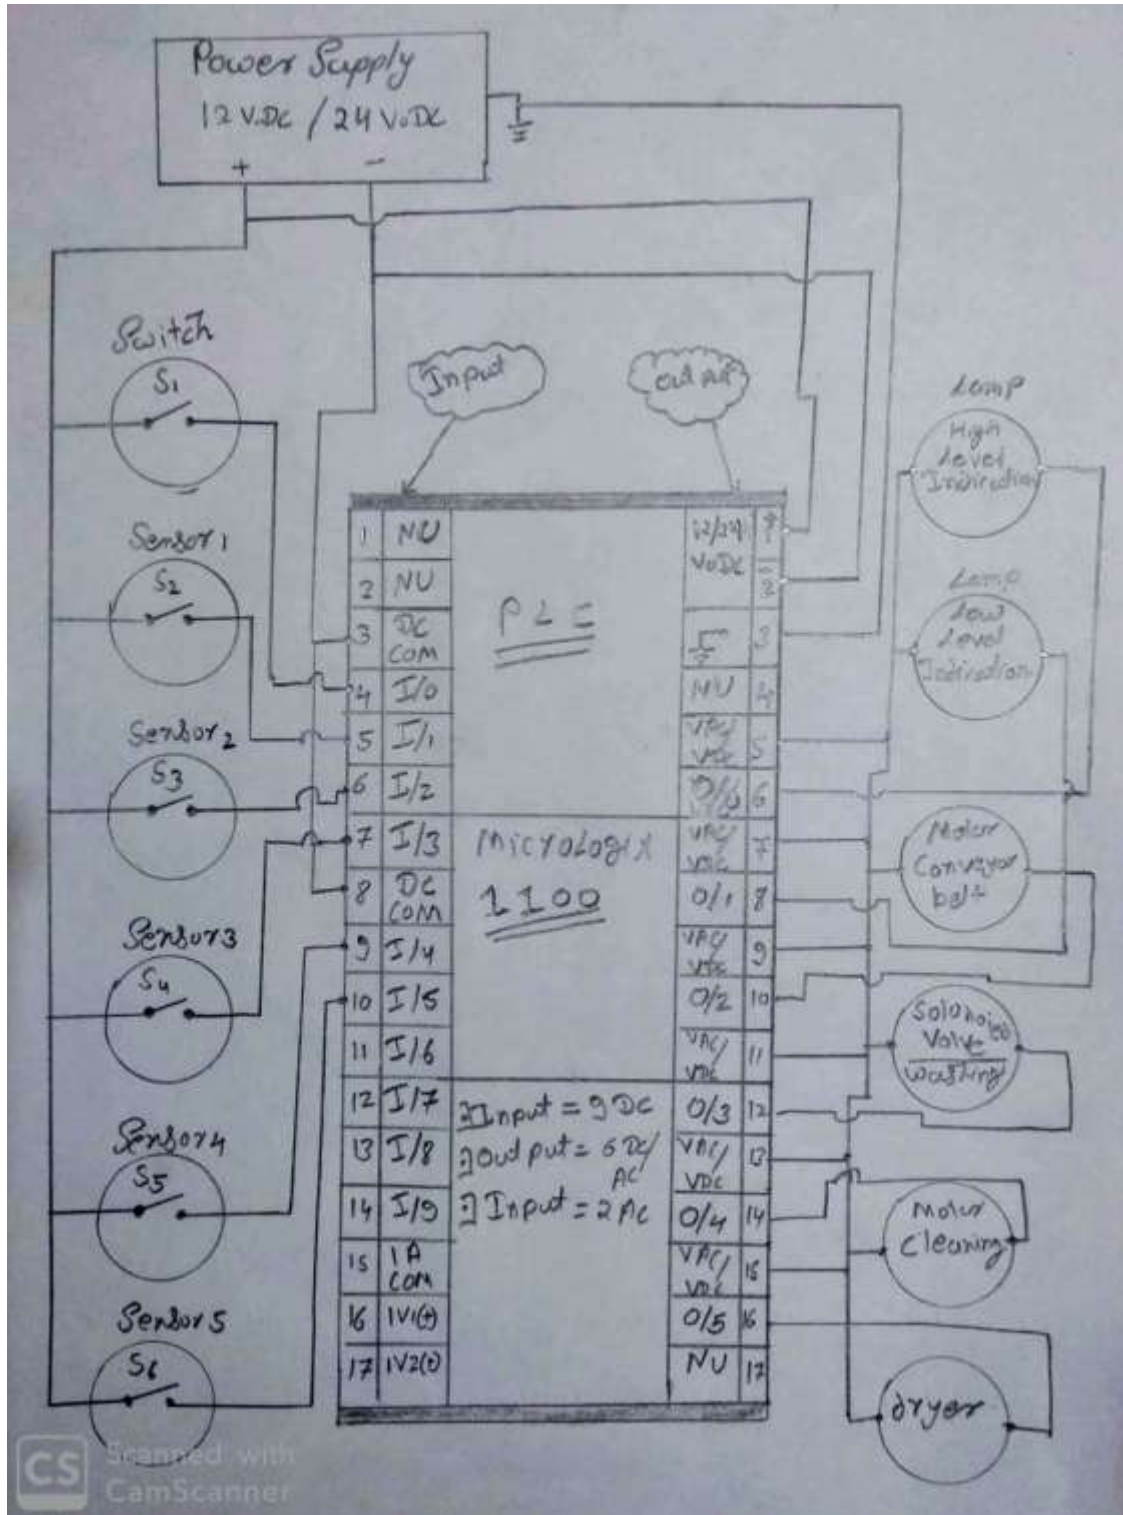 Power Supply
12 V.DC / 24 V.DC
+ −
Switch
S1
Sensor 1
S2
Sensor 2
S3
Sensor 3
S4
Sensor 4
S5
Sensor 5
S6
Input
Output
1 NU
2 NU
3 DC COM
4 I/0
5 I/1
6 I/2
7 I/3
8 DC COM
9 I/4
10 I/5
11 I/6
12 I/7
13 I/8
14 I/9
15 IA COM
16 IV1(+)
17 IV2(+)
PLC
MicroLogix
1100
Input = 9 DC
Output = 6 DC/
AC
Input = 2 AC
12/24 + 1
V.DC − 2
3
NU 4
VAC/VDC 5
O/0 6
VAC/VDC 7
O/1 8
VAC/VDC 9
O/2 10
VAC/VDC 11
O/3 12
VAC/VDC 13
O/4 14
VAC/VDC 15
O/5 16
NU 17
Lamp
High
Level
Indiration
Lamp
Low
Level
Indiration
Motor
Conveyor
belt
Solonoied
Valve
Washing
Motor
Cleaning
dryer
CS Scanned with
CamScanner